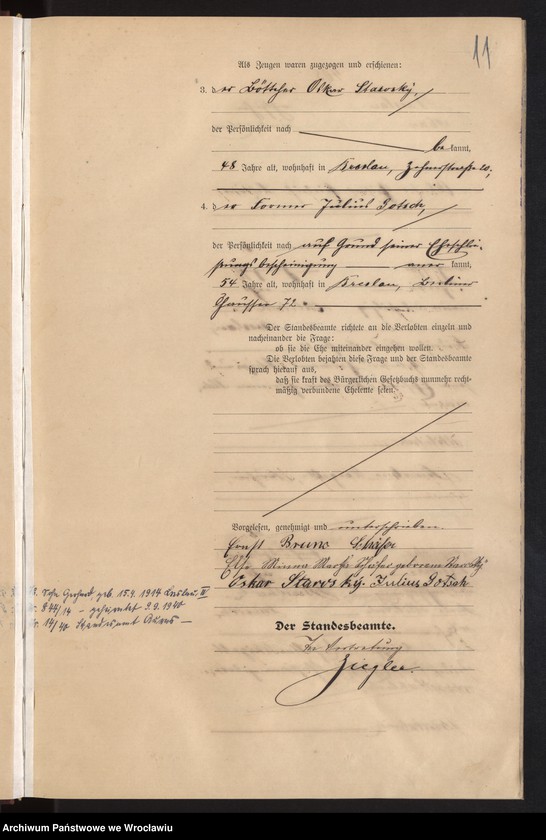 11
Als Zeugen waren zugezogen und erschienen:
3. der Böttcher Oskar Starosky,
der Persönlichkeit nach
bekannt,
48 Jahre alt, wohnhaft in Breslau, 20;
4. der Former Julius Gotsch,
der Persönlichkeit nach auf Grund seiner Eheschlie-
ßungsbescheinigung anerkannt,
54 Jahre alt, wohnhaft in Breslau, Berliner
Chaussee 72.
Der Standesbeamte richtete an die Verlobten einzeln und
nacheinander die Frage:
ob sie die Ehe miteinander eingehen wollen.
Die Verlobten bejahten diese Frage und der Standesbeamte
sprach hierauf aus,
daß sie kraft des Bürgerlichen Gesetzbuchs nunmehr recht-
mäßig verbundene Eheleute seien.
Vorgelesen, genehmigt und unterschrieben.
Ernst Bruno Schäfer
Minna Martha Schäfer geborene Starosky
Oskar Starosky. Julius Gotsch
1. Sohn Gerhard geb. 15.9.1914 Breslau III
Nr. 844/14 – geheiratet 9.9.1940
Nr. 14/40 Standesamt –
Der Standesbeamte.
In Vertretung
Ziegler.
Archiwum Państwowe we Wrocławiu